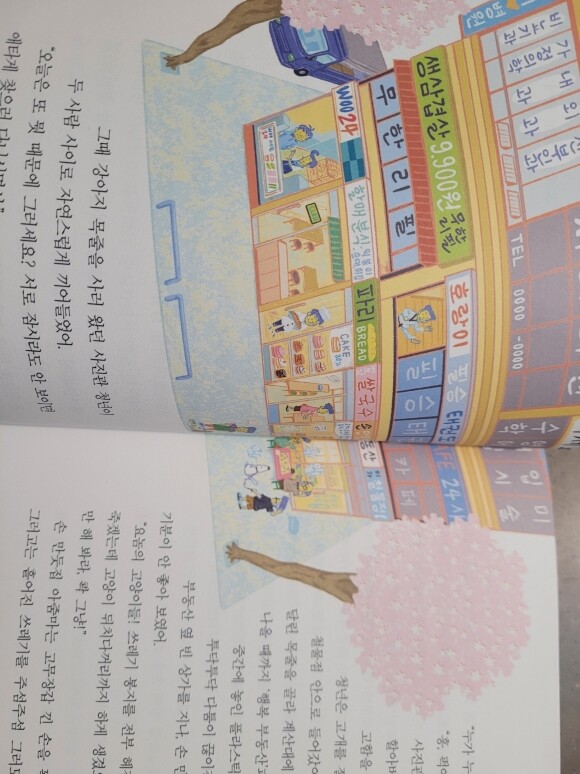 그때 강아지 목줄을 사러 왔던 사진관 청년이
두 사람 사이로 자연스럽게 끼어들었어.
"오늘은 또 뭣 때문에 그러세요? 서로 잠시라도 안 보이면
애타게 찾으러 다니시면서."
병원
비뇨기과
가정의학과
내과
외과
산부인과
TEL 0000-0000
생삼겹살 9,900원 무한리필
무한리필
WOO24
할매분식
파리 BREAD
CAKE
쌀국수
호랑이
필승 태권도
필승 태
카페
24시
수학
입시
미술
부동산
철물점
기분이 안 좋아 보였어.
"요놈의 고양이들! 쓰레기 봉지를 전부 헤
죽겠는데 고양이 뒤치다꺼리까지 하게 생겼
만 해 봐라, 확 그냥!"
손 만둣집 아줌마는 고무장갑 낀 손을
그러고는 흩어진 쓰레기를 주섬주섬 그러모
"누가 누
"흥, 펴이
사진관
할아버
고함을
청년은 고개를
철물점 안으로 들어갔어
달린 목줄을 골라 계산대에
나올 때까지 '행복 부동산'과
중간에 놓인 플라스틱
투다투다 다툼이 끊이
부동산 옆 빈 상가를 지나, 손 만